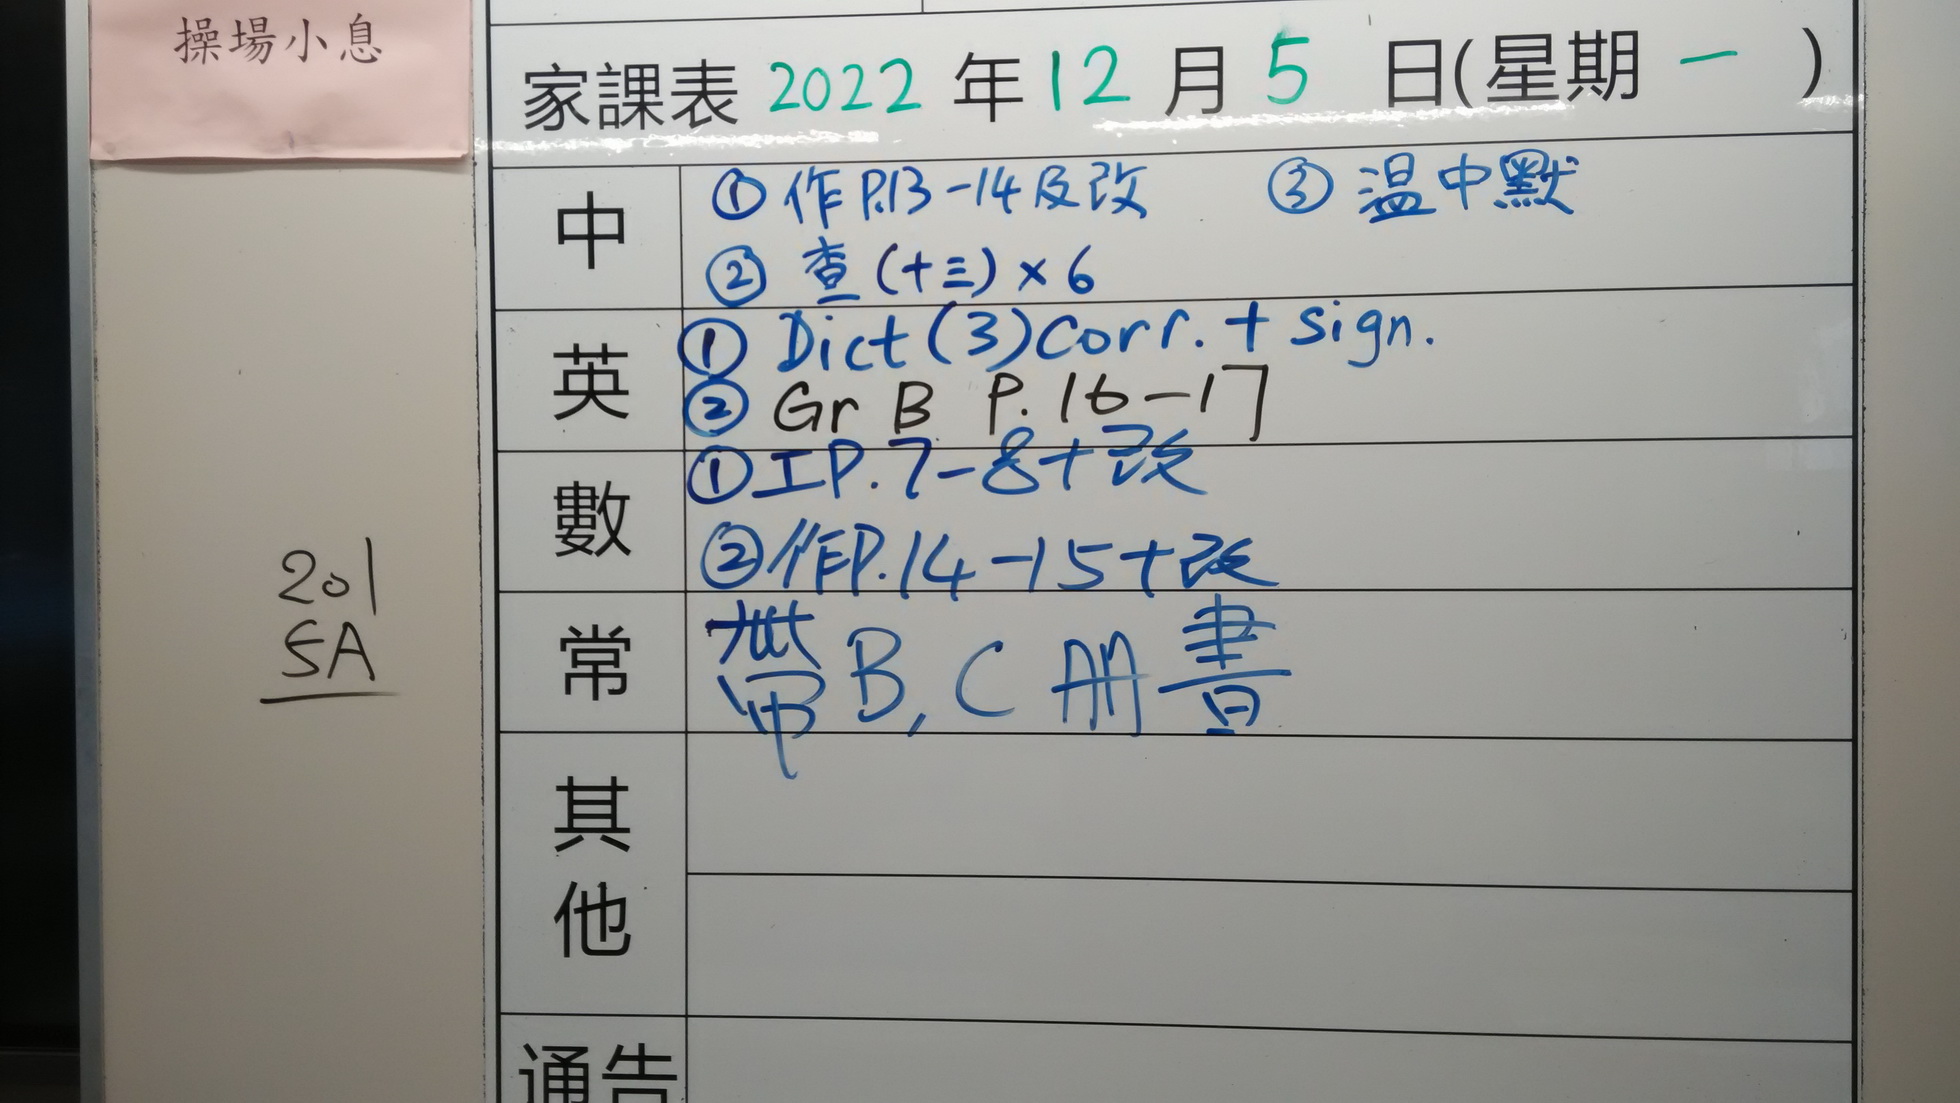 操場小息
家課表 2022 年 12 月 5 日(星期 一 )
中
① 作P.13-14及改 ③ 温中默
② 查(十三)×6
英
① Dict(3)Corr. + sign.
② Gr B P.16-17
數
① 工P.7-8+改
② 作P.14-15+改
常
帶B,C冊書
其他
通告
201
5A